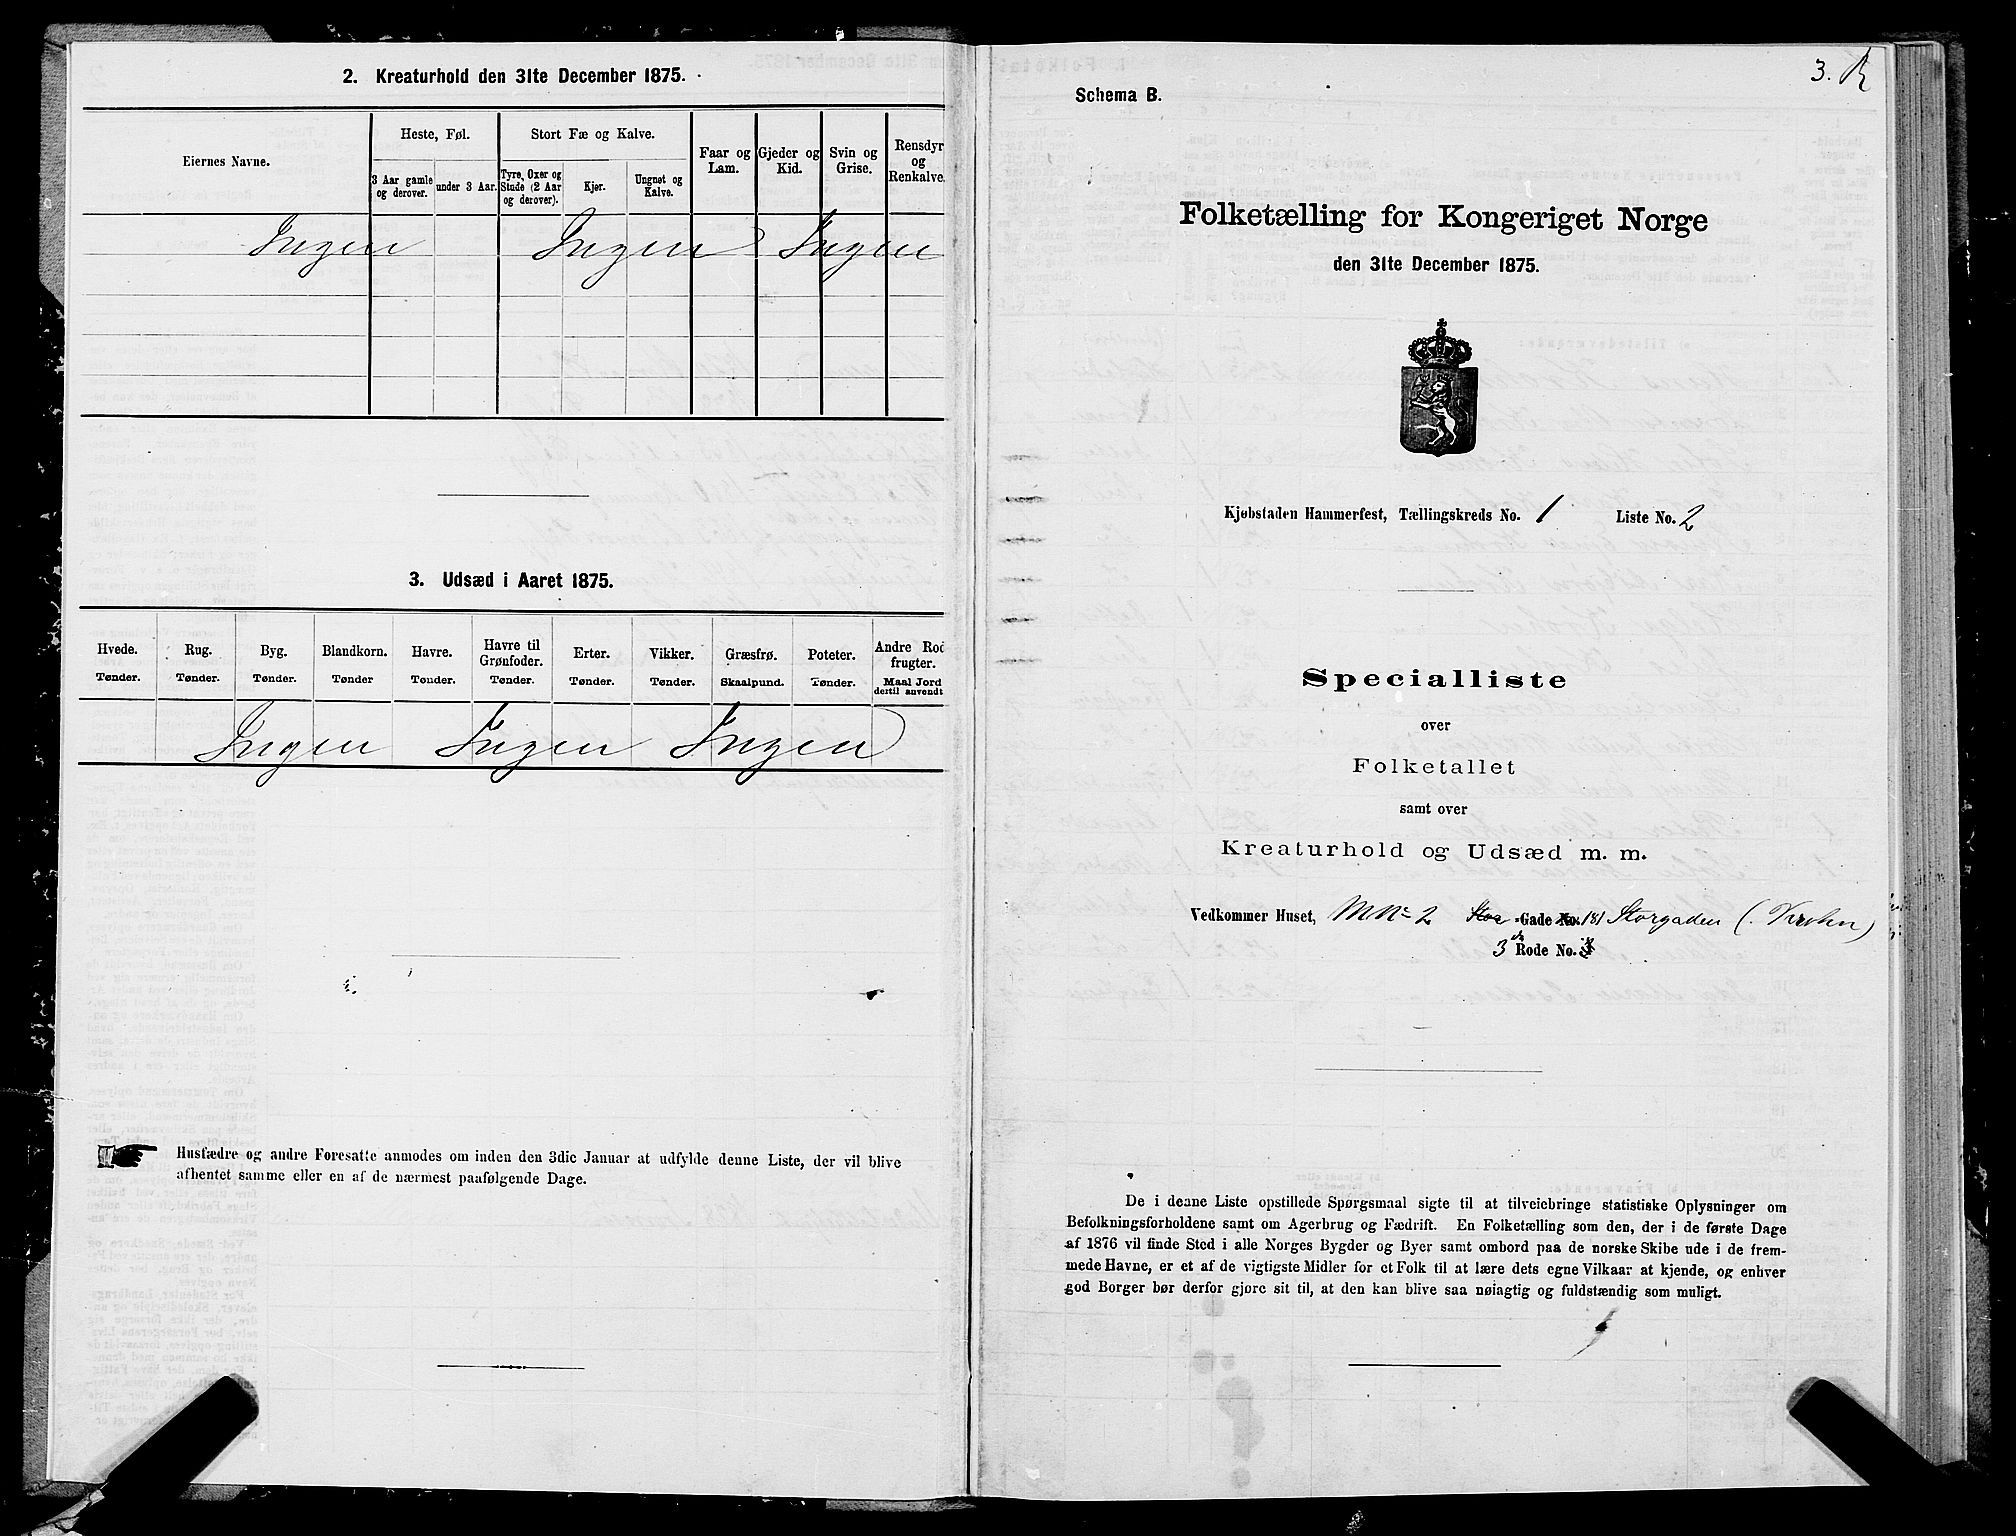 2. Kreaturhold den 31te December 1875.
Eiernes Navne.
Heste, Føl.
3 Aar gamle og derover.
under 3 Aar.
Stort Fæ og Kalve.
Tyre, Oxer og Stude (2 Aar og derover).
Kjør.
Ungnøt og Kalve.
Faar og Lam.
Gjeder og Kid.
Svin og Grise.
Rensdyr og Renkalve.
Ingen Ingen Ingen
3. Udsæd i Aaret 1875.
Hvede. Rug. Byg. Blandkorn. Havre. Havre til Grønfoder. Erter. Vikker. Græsfrø. Poteter. Andre Rod frugter.
Tønder. Tønder. Tønder. Tønder Tønder. Tønder. Tønder. Tønder. Skaalpund. Tønder. Maal Jord dertil anvendt
Ingen Ingen Ingen
Husfædre og andre Foresatte anmodes om inden den 3die Januar at udfylde denne Liste, der vil blive
afhentet samme eller en af de nærmest paafølgende Dage.
3.
Schema B.
Folketælling for Kongeriget Norge
den 31te December 1875.
Kjøbstaden Hammerfest, Tællingskreds No. 1 Liste No. 2
Specialliste
over
Folketallet
samt over
Kreaturhold og Udsæd m. m.
Vedkommer Huset, MNo 2 Stor Gade No. 181 Storgaden
3de Rode No.
De i denne Liste opstillede Spørgsmaal sigte til at tilveiebringe statistiske Oplysninger om
Befolkningsforholdene samt om Agerbrug og Fædrift. En Folketælling som den, der i de første Dage
af 1876 vil finde Sted i alle Norges Bygder og Byer samt ombord paa de norske Skibe ude i de frem-
mede Havne, er et af de vigtigste Midler for et Folk til at lære dets egne Vilkaar at kjende, og enhver
god Borger bør derfor gjøre sit til, at den kan blive saa nøiagtig og fuldstændig som muligt.